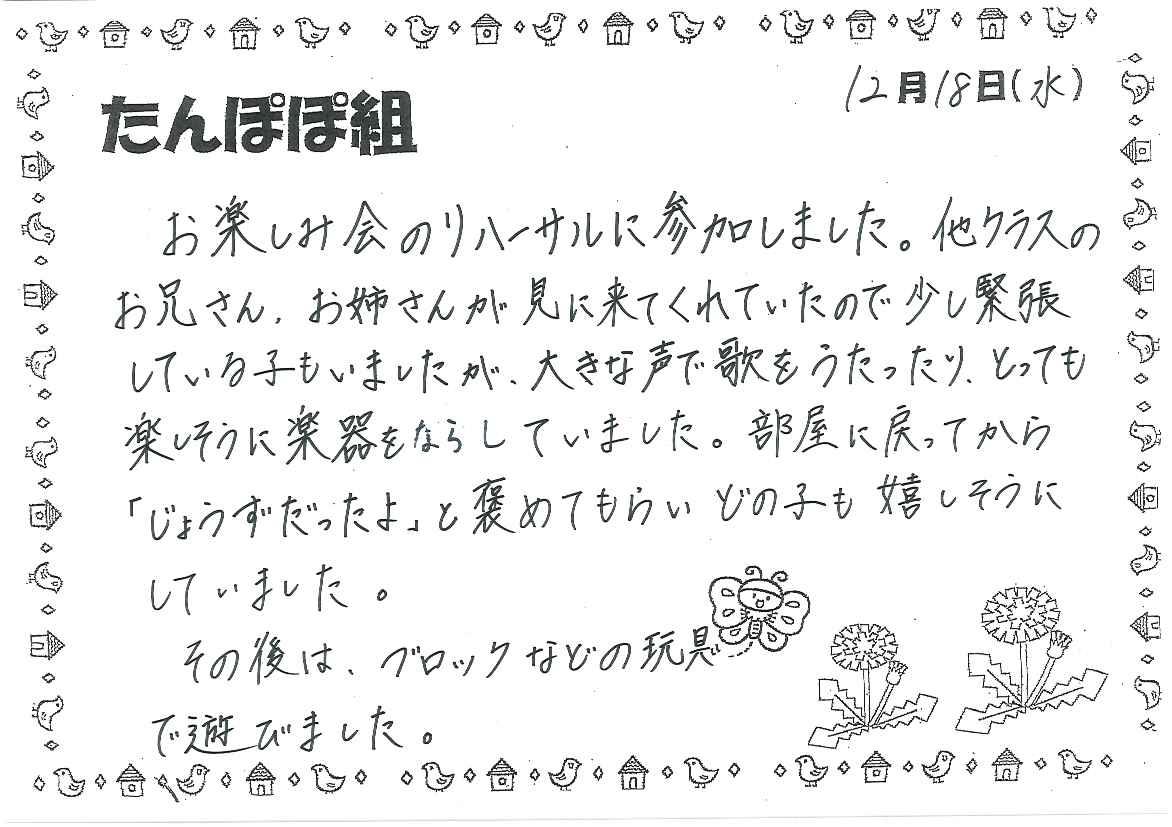 12月18日(水)
たんぽぽ組
お楽しみ会のリハーサルに参加しました。他クラスの
お兄さん、お姉さんが見に来てくれていたので少し緊張
している子もいましたが、大きな声で歌をうたったり、とっても
楽しそうに楽器をならしていました。部屋に戻ってから
「じょうずだったよ」と褒めてもらいどの子も嬉しそうに
していました。
その後は、ブロックなどの玩具
で遊びました。